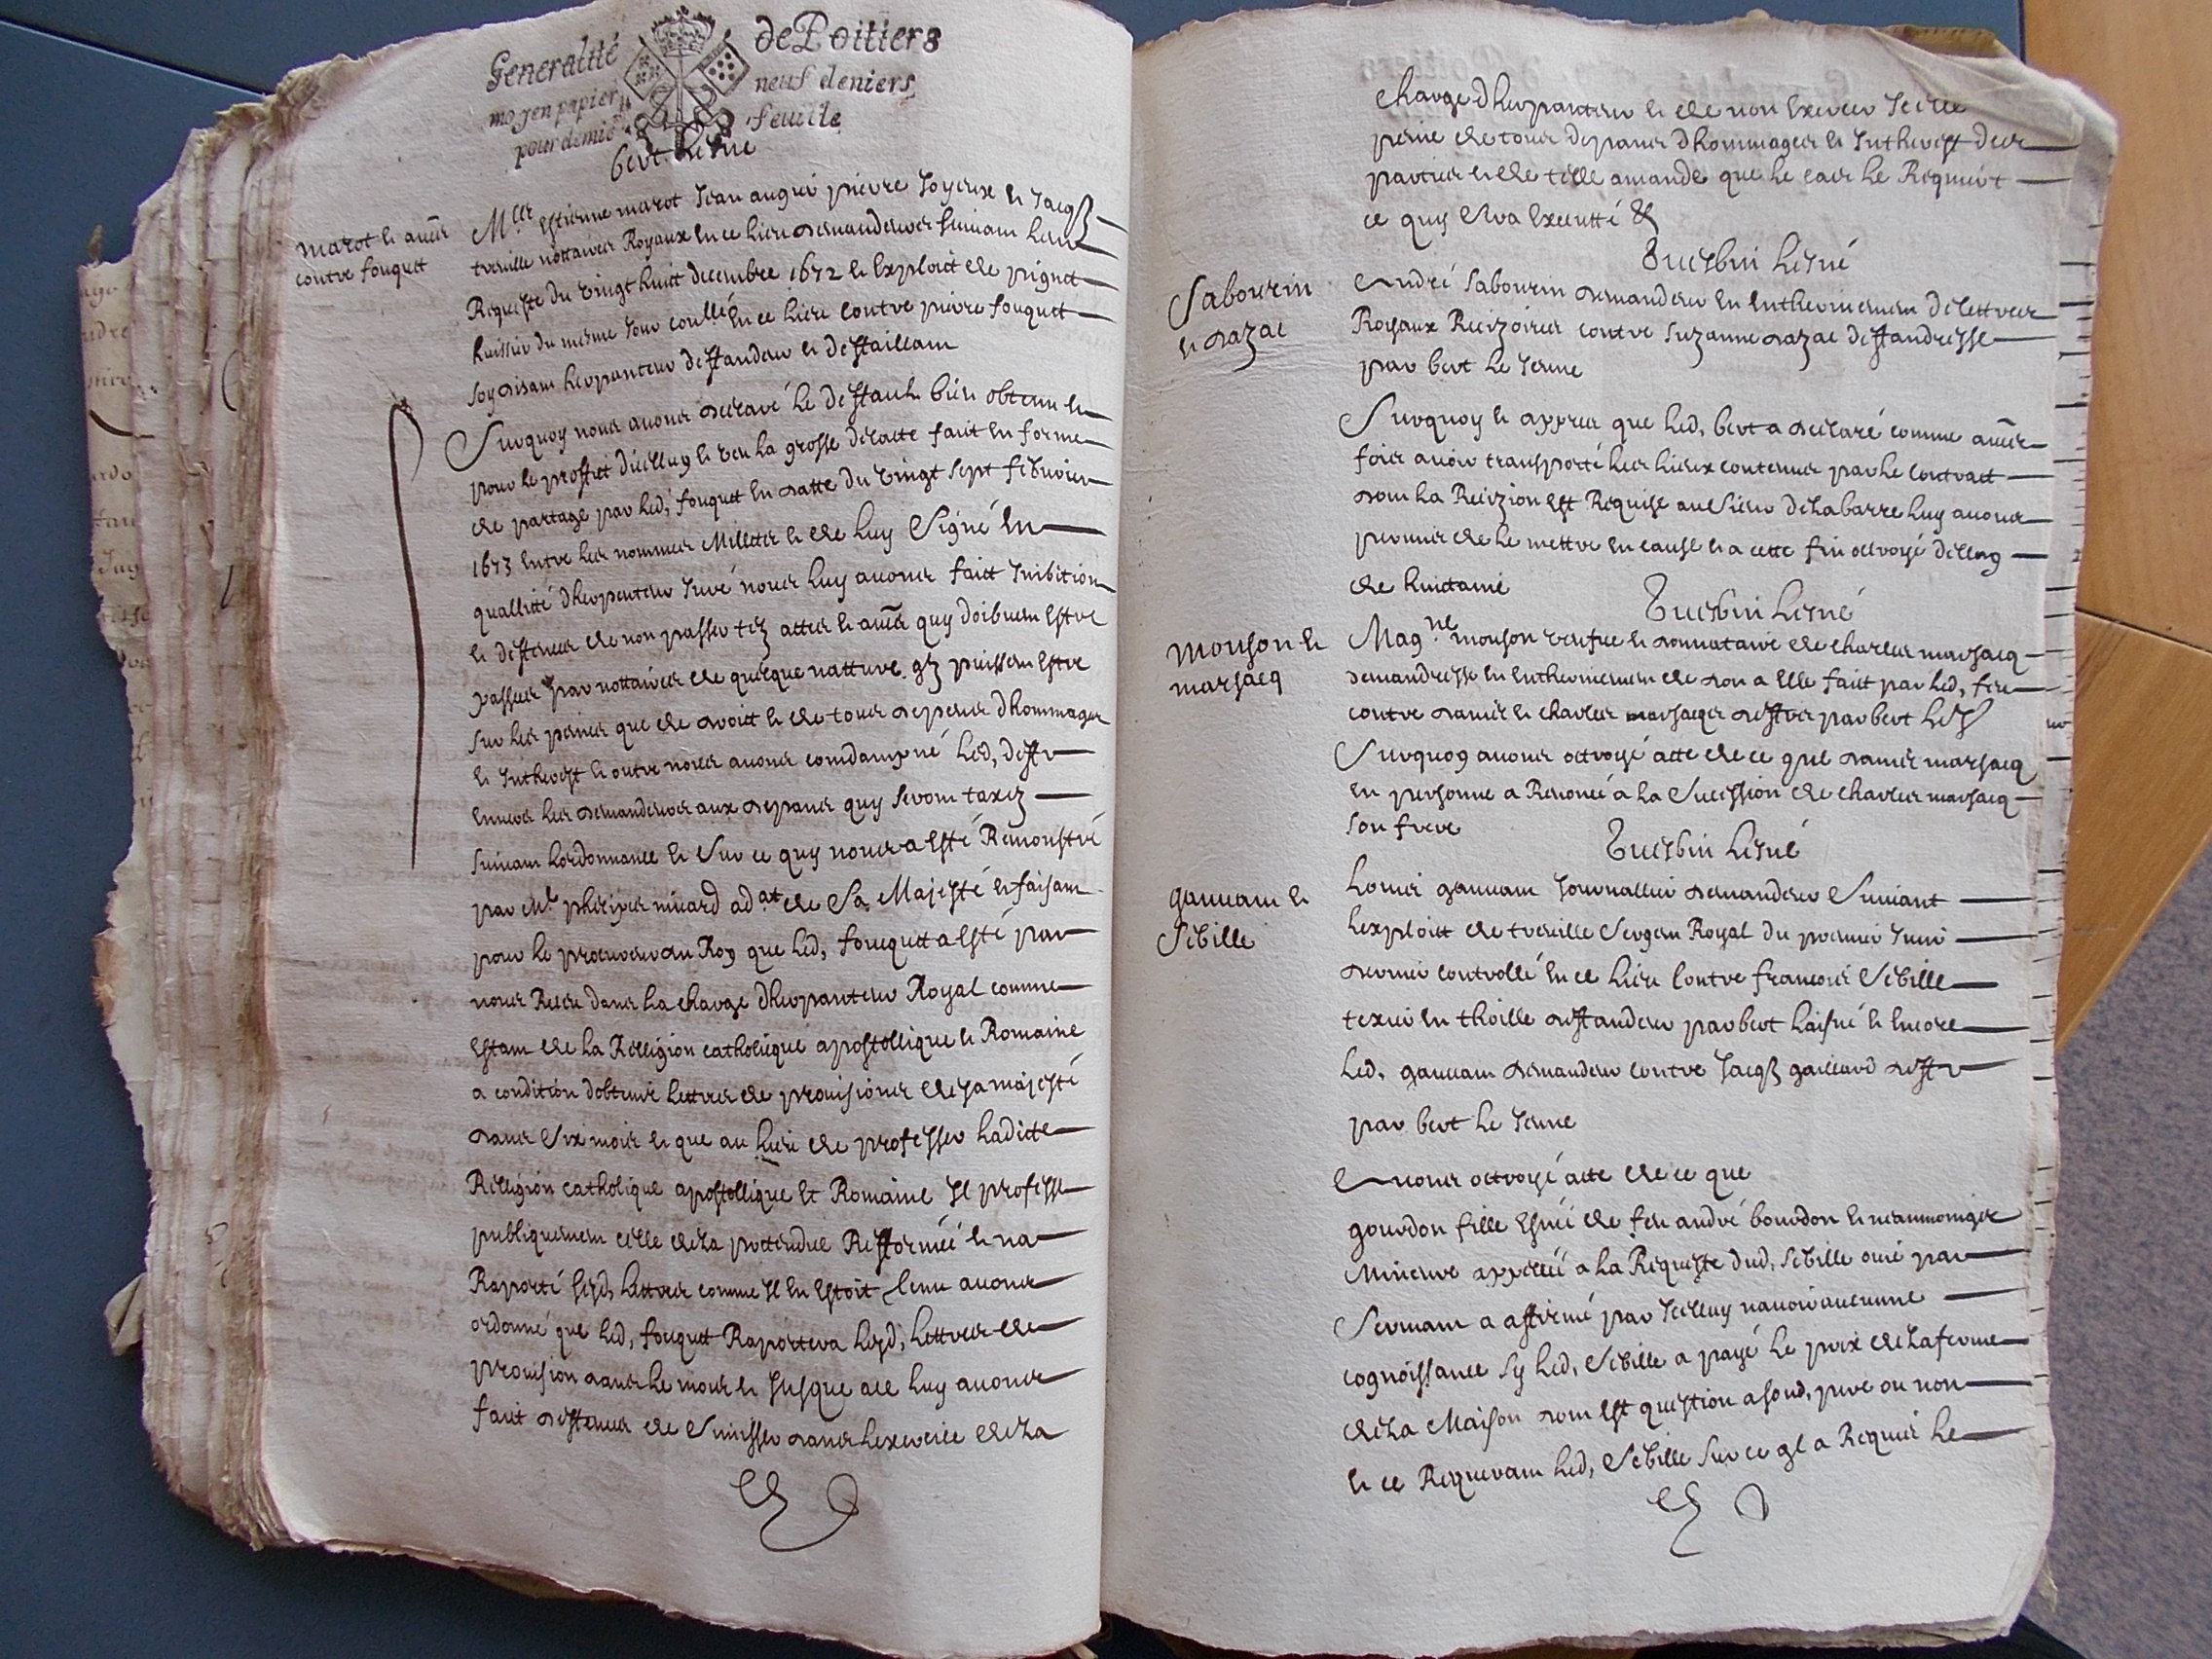 Generalité de Poitiers
moyen papier neuf deniers
pour demie feuille
bert lesné
marot et aues
contre fouquet
Mees Estienne marot Jean augier pierre Joyeux et Jacqs
treuille nottaires Royaux en ce lieu demandeurs suivant leur
Requeste du vingt huict decembre 1672 et Exploict de pignet
huissier du mesme jour conllé en ce lieu contre pierre fouquet
soy disant herpanteur deffandeur et deffaillant
Surquoy nous avons declaré le deffault bien obtenu et
pour le proffict d'icelluy et veu la grosse de l'acte fait en forme
de partage par led, fouquet en datte du vingt sept febvrier
1673 entre les nommes Milletes et de luy Signé en
quallitté d'herpenteur Juré nous luy avons faict Inibition
et deffences de non passer telz actes et aues quy doibuent estre
passes par nottaires de quelque natture qlz puissent estre
sur les peines que de droict et de tous depens dhommages
et Intherest et outre nous avons comdampné led, deffr
envers les demandeurs aux depans quy seront taxez
suivant lordonnance et Sur ce quy nous a esté Remonstré
par Me phelipes nicard adat de Sa Majesté et faisant
pour le procureur du Roy que led, fouquet a esté par
nous Receu dans la charge dherpanteur Royal comme
Estant de la Relligion catholicque apostollique et Romaine
a condition dobtenir lettres de provisions de sa majesté
dans Six mois et que au lieu de professer ladicte
Relligion catholique apostollique et Romaine Il professe
publiquement celle de la prettendue Refformée et na
Raporté lesd, lettres comme Il en estoit tenu avons
ordonné que led, fouquet Raportera lesd, lettres de
provision dans le mois et Jusque a ce luy avons
fait deffences de Simisser dans lexercice de la
charge dherpanteur et de non Exercer Icelle
peine de tous depans dhommages et Intherest des
parties et de telle amande que le cas le Requiert
ce quy sera Executté &
Tuesbin lesné
Sabourin
et dazac
André Sabourin demandeur en entherinement de lettres
Royaux Recizoires contre Suzanne dazac deffandresse
par bert le Jeune
Surquoy et appres que led, bert a declaré comme aues
fois avoir transporté les lieux contenus par le contract
dont la Recizion est Requise au Sieur de labarre luy avons
permis de le mettre en cause et a cette fin octroyé dellay
de huictaine
Tuesbin lesné
Monson et
marsacq
Magne monson veufve et donnataire de charles marsacq
demandresse en entherinement de don a elle faict par led, feu
contre danie et charles marsacqs deffers par bert led
Surquoy avons octroyé acte de ce que danie marsacq
en personne a Renoncé a la Sucession de charles marsacq
son frere
Tuesbin lesné
gauuain et
Sebille
Louis gauuain Journallier demandeur Suivant
lexploict de treuille Sergent Royal du premier Juin
dernier controllé en ce lieu contre francois Sebille
texier en thoille deffandeur par bert laisné et encore
led, gauuain demandeur contre Jacqs gaillard deffr
par bert le Jeune
avons octroyé acte de ce que
gourdon fille esnée de feu andré bourdon et neanmoings
mineure appellée a la Requeste dud, Sebille ouie par
Serment a affirmé par Icelluy navoir aucunne
cognoissance sy led, Sebille a payé le prix de la ferme
de la Maison dont est question a sond, pere ou non
et ce Requerant led, Sebille Sur ce ql a Requis le